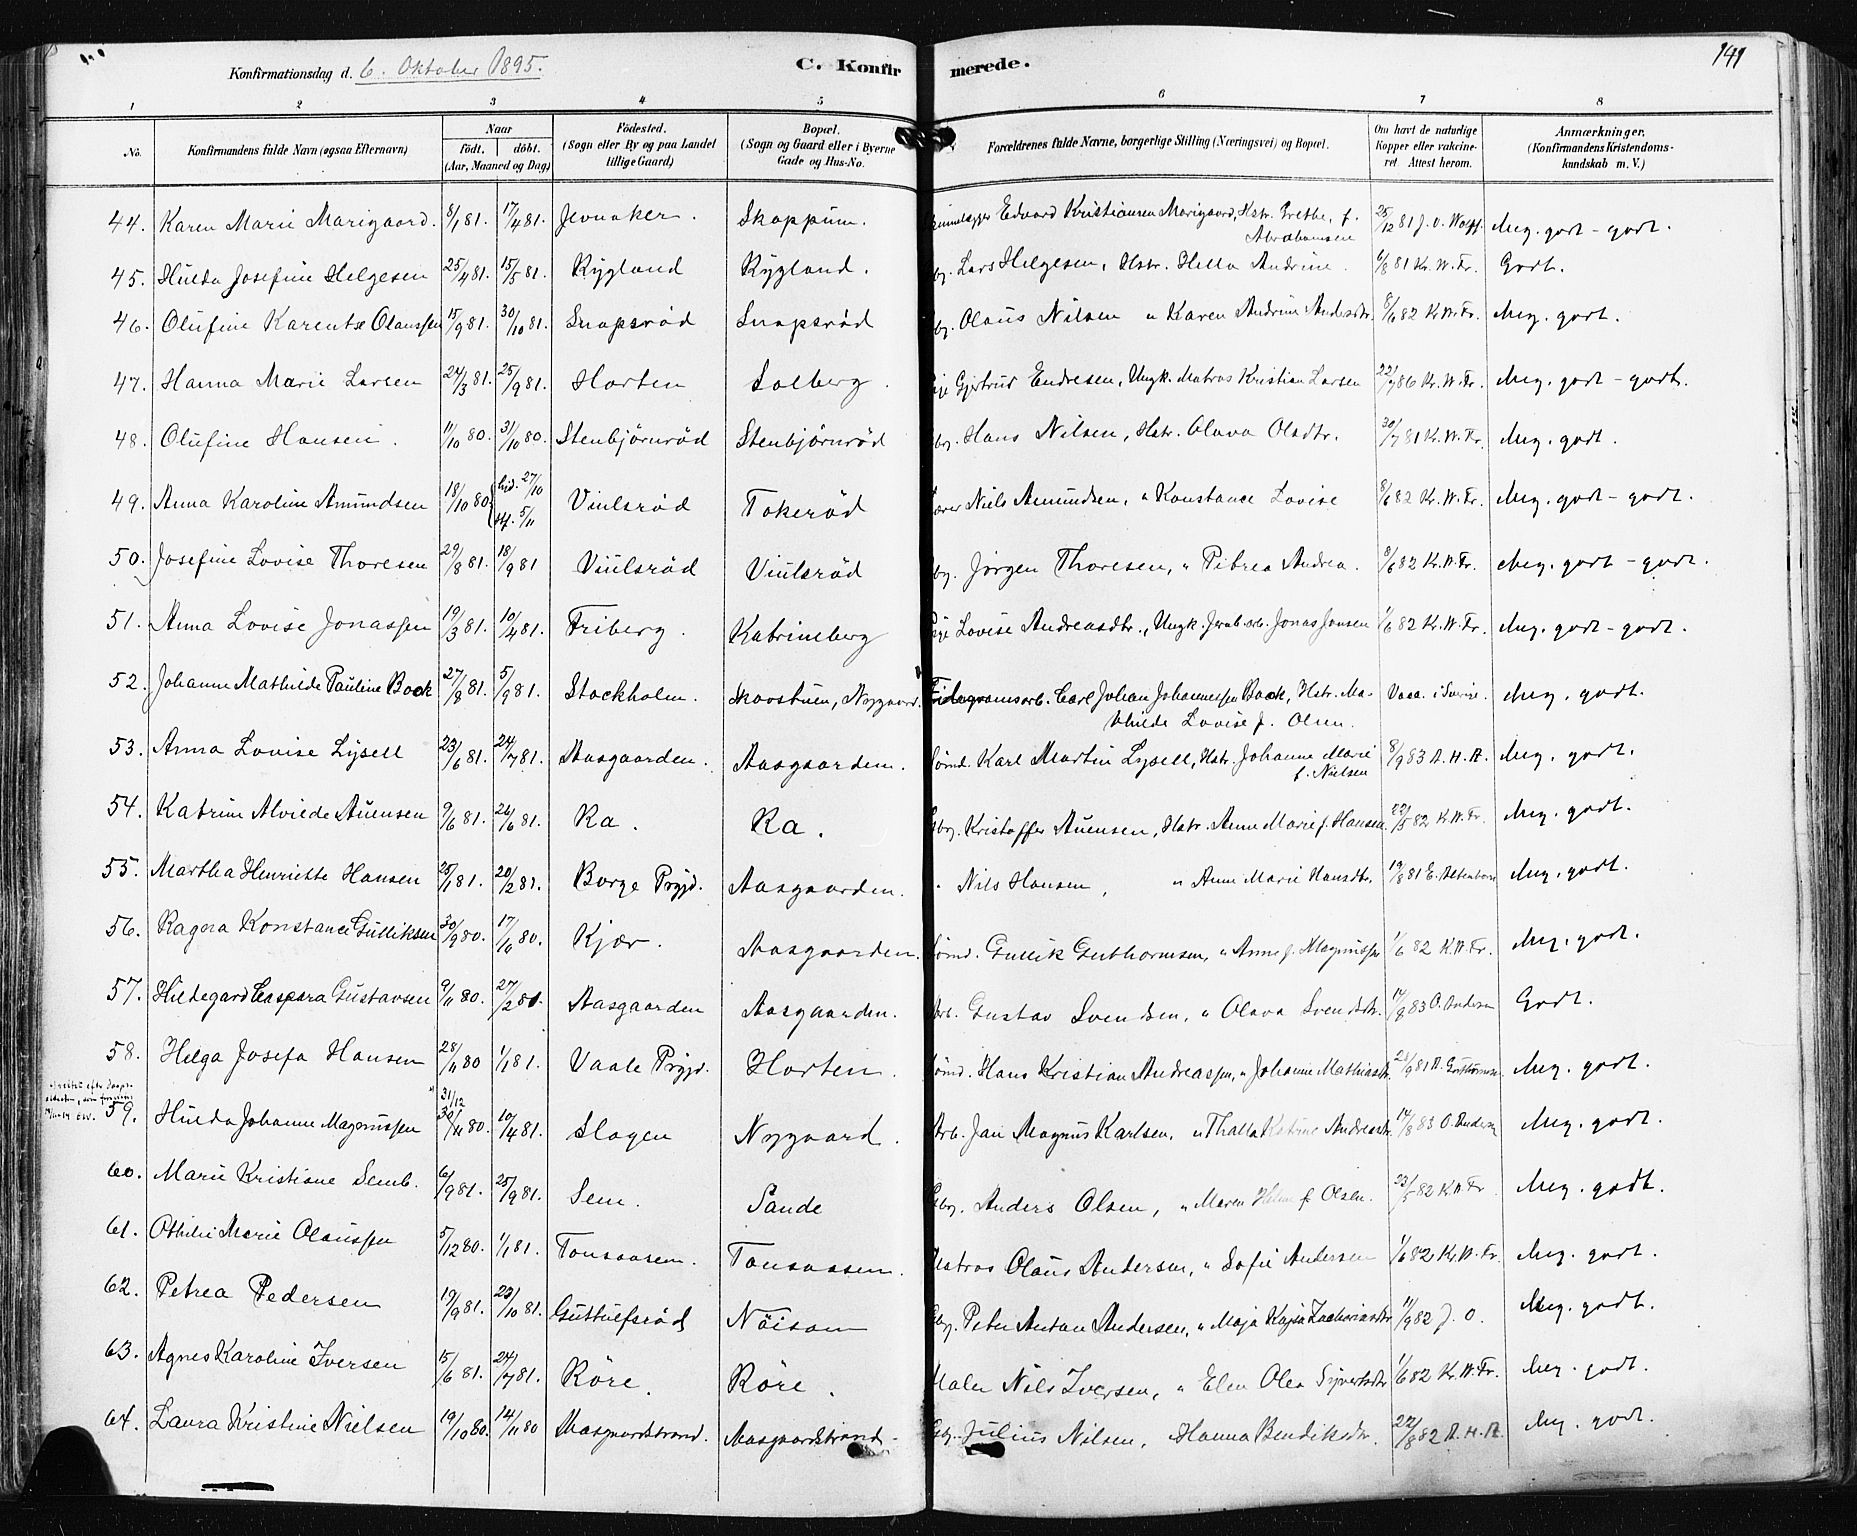 141
Konfirmationsdag d. 6. Oktober 1895.
C. Konfirmerede.
1 2 3 4 5 6 7 8
No. Konfirmandens fulde Navn (ogsaa Efternavn) Naar födt. döbt. (Aar, Maaned og Dag) Födested. (Sogn eller By og paa Landet tillige Gaard) Bopæl. (Sogn og Gaard eller i Byerne Gade og Hus-No. Forældrenes fulde Navne, borgerlige Stilling (Næringsvei) og Bopæl. Om havt de naturlige Kopper eller vakcineret. Attest herom. Anmærkninger. (Konfirmandens Kristendomskundskab m. V.)
44. Karen Marie Marigaard. 8/1 81. 17/4 81. Jevnaker. Skoppum. Edvard Kristiansen Marigaard, Hstr. Grethe, f. Abrahamsen 25/12 81 J. O. Wolff. Meg. godt - godt.
45. Hulda Josefine Helgesen 25/4 81. 15/5 81. Rygland Rygland. Lars Helgesen, Hstr. Hella Andrine. 6/8 81 Kr. W. Fr. Godt.
46. Olufine Karentse Olaussen 15/9 81. 30/10 81. Snapsröd Snapsröd Olaus Nilsen " Karen Andrine Andersdtr. 8/6 82 Kr. W. Fr. Meg. godt.
47. Hanna Marie Larsen 24/3 81. 25/9 81. Horten Solberg. Gjertrud Endresen, Ungk. Matros Kristian Larsen 22/7 86 Kr. W. Fr. Meg. godt - godt.
48. Olufine Hansen. 11/10 80. 31/10 80. Stenbjörnröd Stenbjörnröd Hans Nilsen, Hstr. Olava Olsdtr. 30/7 81 Kr. W. Fr. Meg. godt.
49. Anna Karoline Amundsen 18/10 80 27/10 5/11 Viulsröd Tokeröd Niels Amundsen, " Konstance Lovise 8/6 82 Kr. W. Fr. Meg. godt - godt.
50. Josefine Lovise Thoresen 29/8 81. 18/9 81 Viulsröd Viulsröd Jörgen Thoresen, " Petrea Andrea. 8/6 82 Kr. W. Fr. Meg. godt - godt.
51. Anna Lovise Jonassen 19/3 81. 10/4 81. Friberg. Katrineberg Lovise Andreasdtr., Ungk. Jernb.arb. Jonas Jonsen 1/6 82 Kr. W. Fr. Meg. godt - godt.
52. Johanne Mathilde Pauline Book 27/8 81. 5/9 81. Stockholm. Skovstuen, Nygaard. Carl Johan Johannessen Book, Hstr. Mathilde Lovise f. Olsen. Vacc. i Sverige. Meg. godt.
53. Anna Lovise Lysell 23/6 81. 24/7 81. Aasgaarden. Aasgaarden. Karl Martin Lysell, Hstr. Johanne Marie f. Nielsen 8/9 83 A. H. A. Meg. godt.
54. Katrine Alvilde Auensen 9/6 81. 26/6 81. Ra. Ra. Kristoffer Auensen, Hstr. Anne Marie f. Hansen. 22/5 82 Kr. W. Fr. Meg. godt.
55. Martha Henriette Hansen 25/1 81. 20/2 81. Borge Prgjd. Aasgaarden. " Nils Hansen, " Anne Marie Hansdtr. 19/8 81 E. Meg. godt.
56. Ragna Konstance Gulliksen 30/9 80. 17/10 80. Kjær. Aasgaarden. Gullik Guthormsen, " Anne f. Magnussen 1/6 82 Kr. W. Fr. Meg. godt.
57. Hildegard Caspara Gustavsen 9/11 80. 27/2 81. Aasgaarden Aasgaarden. Arb. Gustav Svendsen, " Olava Svendsdtr. 14/8 83 O. Andersen Godt.
58. Helga Josefa Hansen 28/11 80 1/1 81. Vaale Prgjd. Horten. Hans Kristian Andreassen, " Johanne Mathiasdtr. 21/9 81 A. Guthormsen Meg. godt.
59. Hulda Johanne Magnussen 31/12 30/11 80. 10/4 81. Slagen Nygaard. Arb. Jan Magnus Karlsen, " Thalla Katrine Andreasdtr. 14/8 83 O. Andersen Meg. godt.
60. Marie Kristiane Semb. 6/9 81. 25/9 81. Sem. Sande Anders Olsen, " Maren Helene f. Olsen. 23/5 82 Kr. W. Fr. Meg. godt.
61. Othilie Marie Olaussen 5/12 80. 1/1 81. Tonsaasen. Tonsaasen. Matros Olaus Andersen, " Sofie Andersen 1/6 82 Kr. W. Fr. Meg. godt.
62. Petrea Pedersen 19/9 81. 23/10 81. Guttulfsröd Nöisom Peter Anton Andersen, " Maja Kajsa Zachariasdtr 11/9 82 J. O. Meg. godt.
63. Agnes Karoline Iversen 15/6 81. 24/7 81. Röre. Röre. Maler Nils Iversen, " Elen Olea Syvertsdtr 1/6 82 Kr. W. Fr. Meg. godt.
64. Laura Kristine Nielsen 19/10 80. 14/11 80 Aasgaardstrand. Aasgaardstrand. Julius Nilsen, Hanna Bendiksdtr. 22/8 82 A. H. A. Meg. godt.